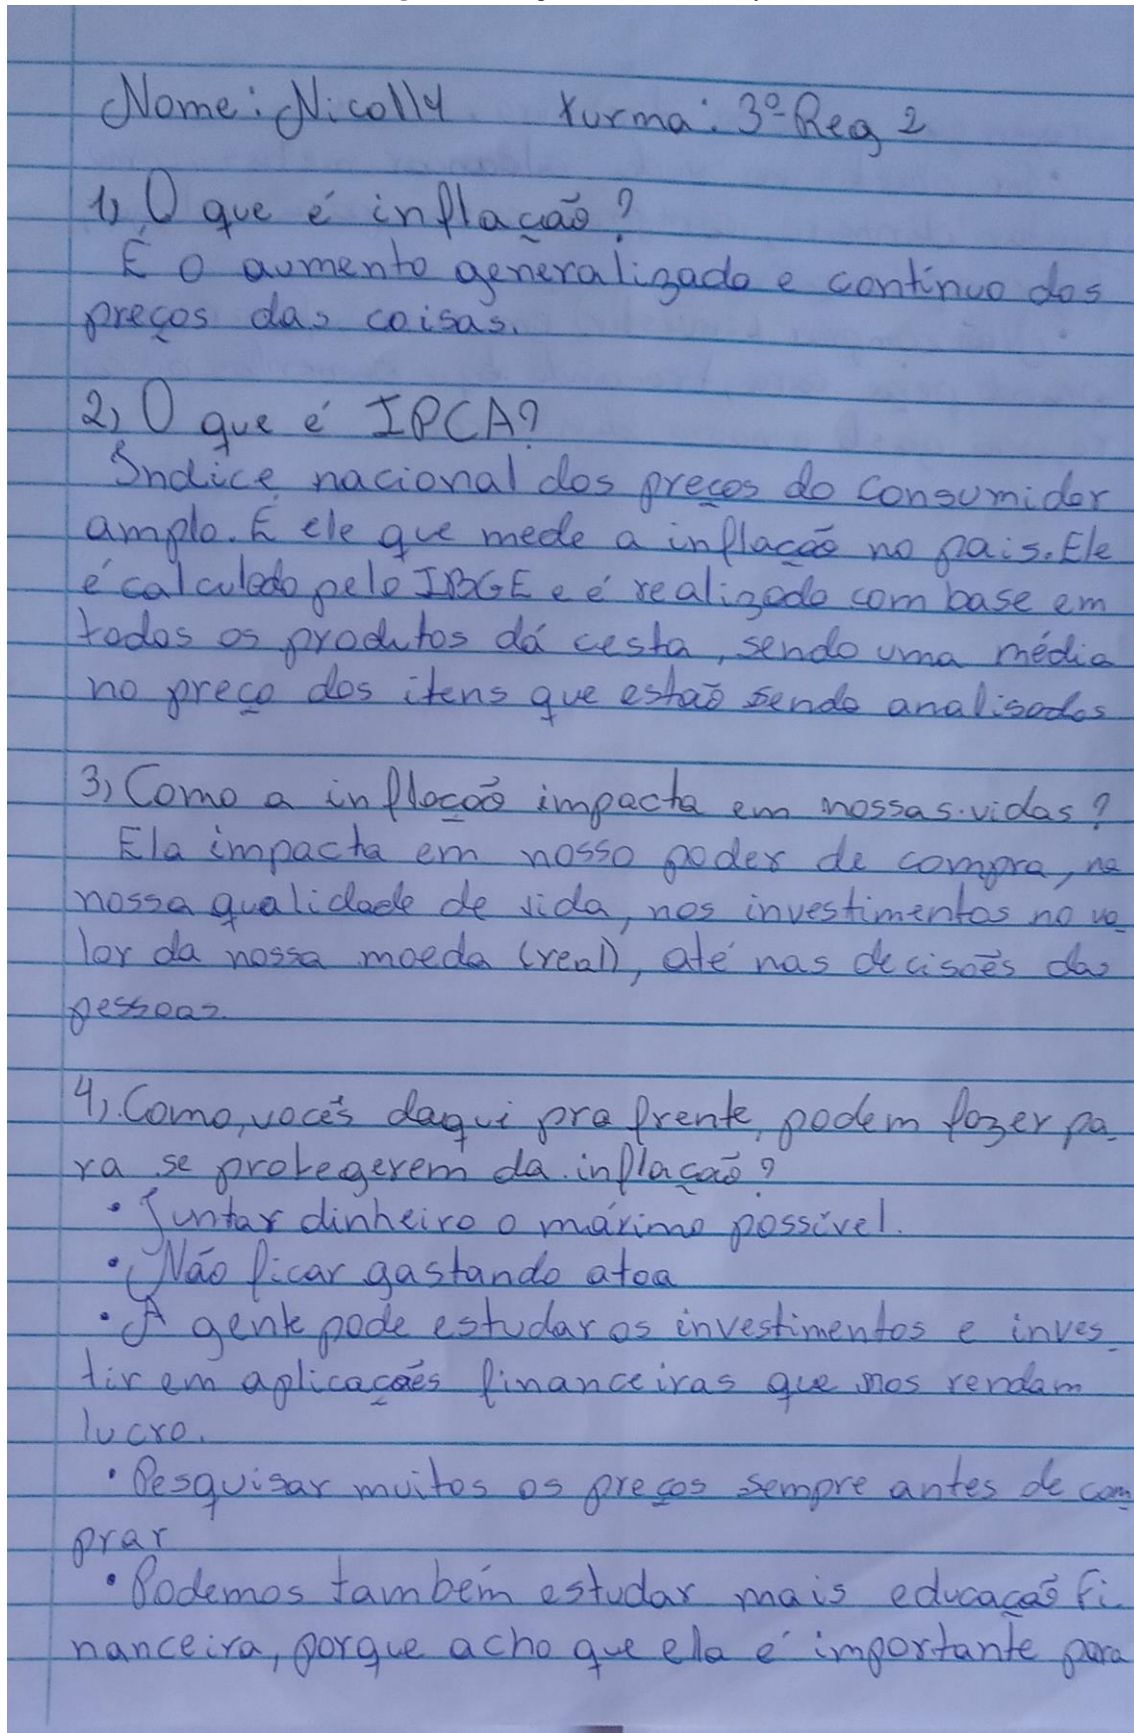 Nome: Nicolly turma: 3º Reg 2
1) O que é inflação?
É o aumento generalizado e contínuo dos
preços das coisas.
2) O que é IPCA?
Índice nacional dos preços do consumidor
amplo. É ele que mede a inflação no pais. Ele
é calculado pelo IBGE e é realizado com base em
todos os produtos dá cesta, sendo uma média
no preço dos itens que estão sendo analisados
3) Como a inflação impacta em nossas vidas?
Ela impacta em nosso poder de compra, na
nossa qualidade de vida, nos investimentos no va
lor da nossa moeda (real), até nas decisões das
pessoas.
4) Como, vocês daqui pra frente, podem fazer pa
ra se protegerem da inflação?
• Juntar dinheiro o máximo possível.
• Não ficar gastando atoa
• A gente pode estudar os investimentos e inves
tir em aplicações financeiras que nos rendam
lucro.
• Pesquisar muitos os preços sempre antes de com
prar
• Podemos também estudar mais educação fi
nanceira, porque acho que ela é importante para